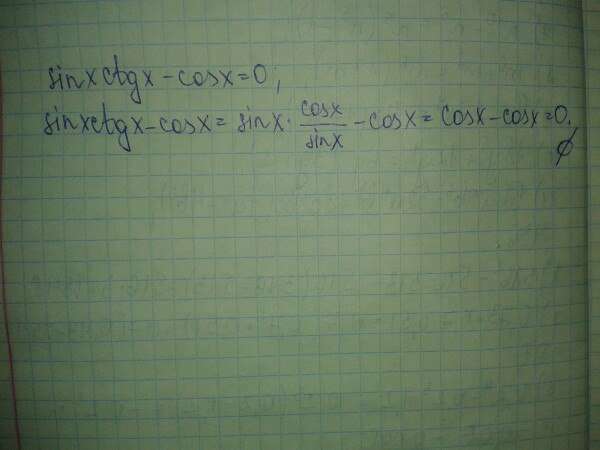 sinx ctgx - cosx = 0;
sinxctgx - cosx = sinx · cosx/sinx - cosx = cosx - cosx = 0.
∅